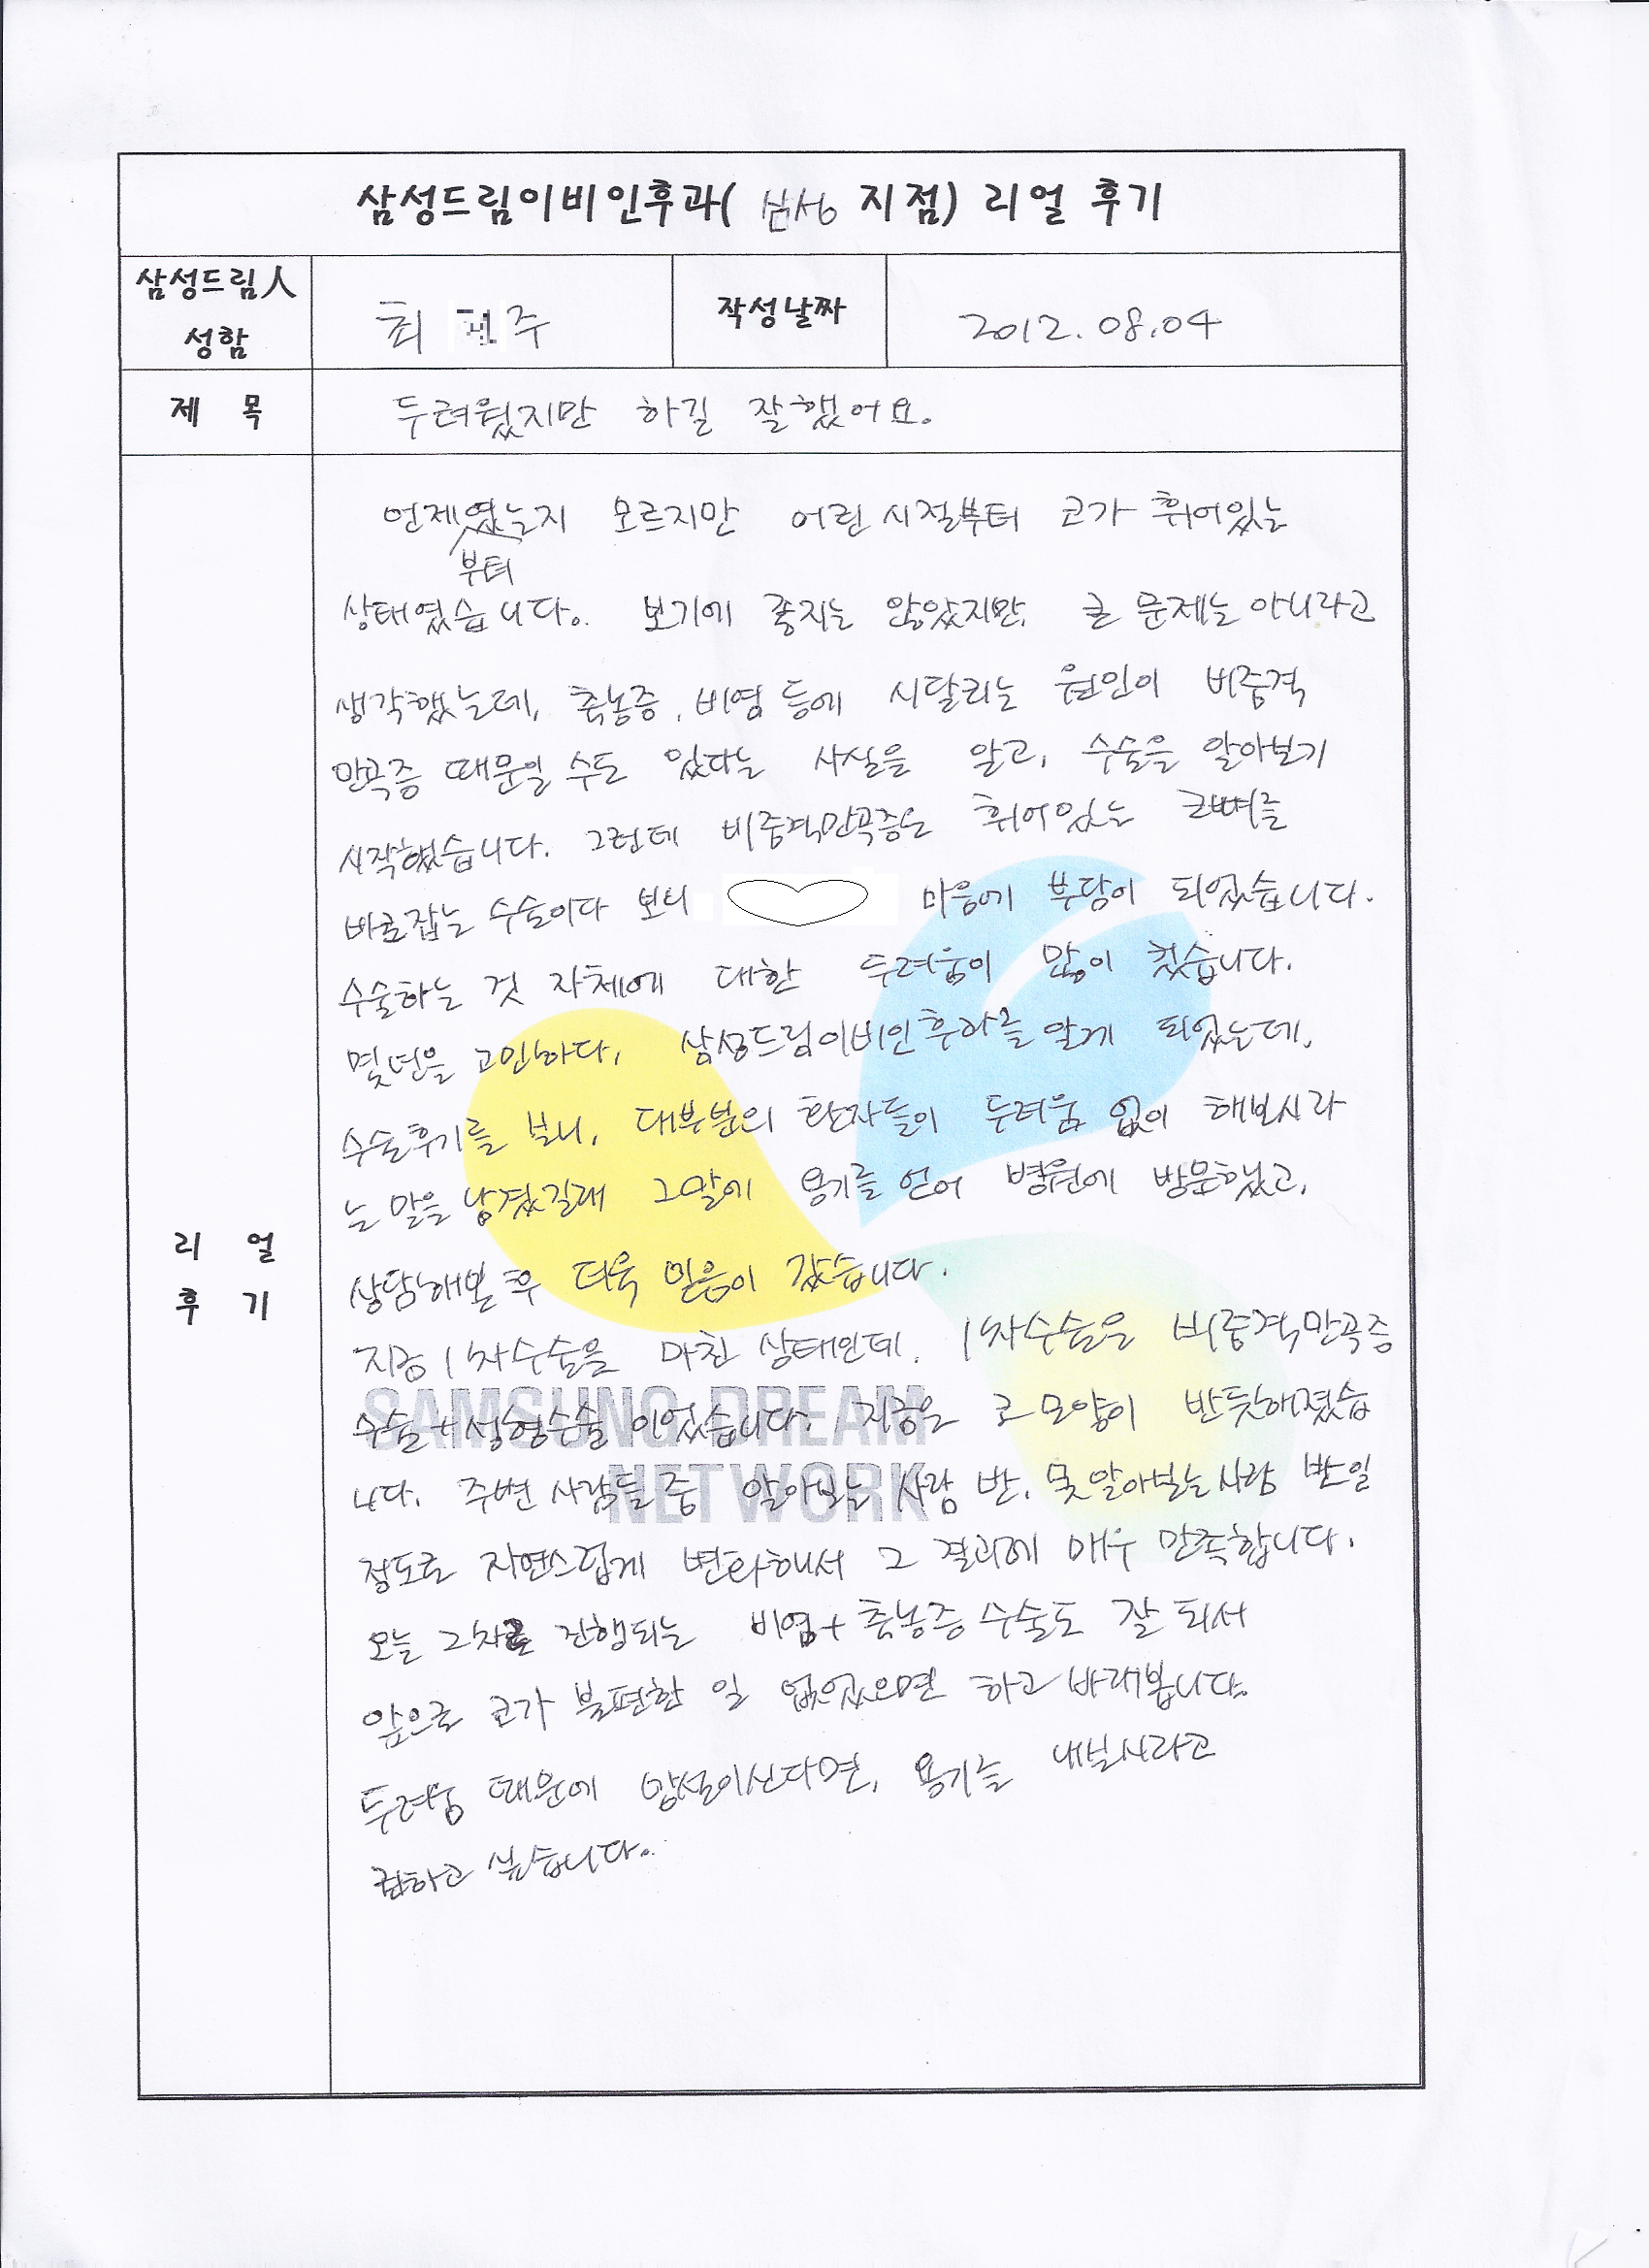 삼성드림이비인후과( 삼성 지점) 리얼 후기
삼성드림人
성함
최 주
작성날짜
2012.08.04
제 목
두려웠지만 하길 잘했어요.
리 얼
후 기
언제였는지 모르지만 어린 시절부터 코가 휘어있는
부터
상태였습니다. 보기에 좋지는 않았지만, 큰 문제는 아니라고
생각했는데, 축농증, 비염 등에 시달리는 원인이 비중격
만곡증 때문일 수도 있다는 사실을 알고, 수술을 알아보기
시작했습니다. 그런데 비중격만곡증은 휘어있는 코뼈를
바로잡는 수술이다 보니 마음에 부담이 되었습니다.
수술하는 것 자체에 대한 두려움이 많이 컸습니다.
몇년을 고민하다, 삼성드림이비인후과를 알게 되었는데,
수술후기를 보니, 대부분의 환자들이 두려움 없이 해보시라
는 말을 남겼길래 그말에 용기를 얻어 병원에 방문했고,
상담해본 후 더욱 믿음이 갔습니다.
지금 1차수술을 마친 상태인데, 1차수술은 비중격만곡증
수술+성형수술 이었습니다. 지금은 코 모양이 반듯해졌습
니다. 주변 사람들 중 알아보는 사람 반, 못 알아보는 사람 반일
정도로 자연스럽게 변화해서 그 결과에 매우 만족합니다.
오늘 2차로 진행되는 비염+축농증 수술도 잘 되서
앞으로 코가 불편한 일 없었으면 하고 바래봅니다.
두려움 때문에 망설이신다면, 용기를 내보시라고
전하고 싶습니다.
SAMSUNG DREAM
NETWORK